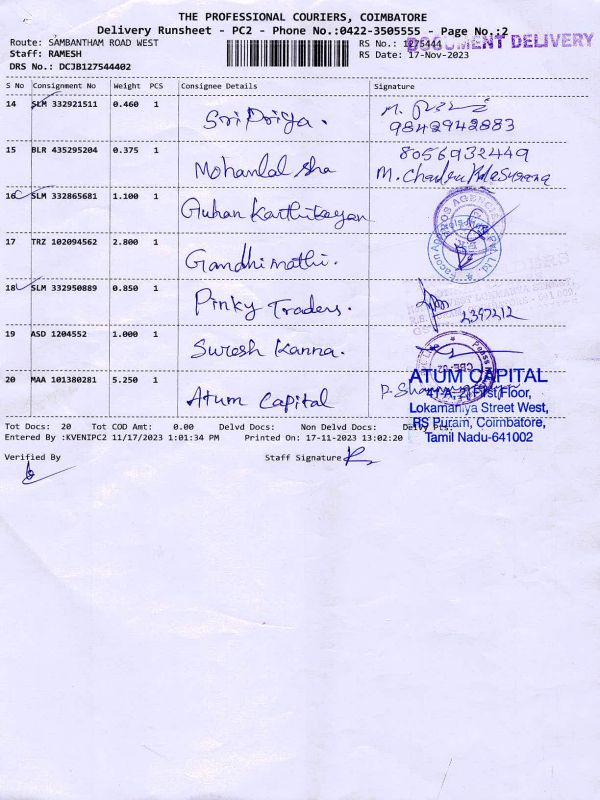 THE PROFESSIONAL COURIERS, COIMBATORE
Delivery Runsheet - PC2 - Phone No.:0422-3505555 - Page No.:2
Route: SAMBANTHAM ROAD WEST
RS No.: 1275444
DOCUMENT DELIVERY
Staff: RAMESH
RS Date: 17-Nov-2023
DRS No.: DCJB127544402
S No Consignment No Weight PCS Consignee Details Signature
14 SLM 332921511 0.460 1 Sri Priya.
9842942883
15 BLR 435295204 0.375 1 Mohanlal sha
8056932449
16 SLM 332865681 1.100 1 Guhan Karthikeyan
17 TRZ 102094562 2.800 1 Gandhimathi.
18 SLM 332950889 0.850 1 Pinky Traders.
2397212
19 ASD 1204552 1.000 1 Suresh Kanna.
20 MAA 101380281 5.250 1 Atum Capital
ATUM CAPITAL
41-A, 21 First Floor,
Lokamaniya Street West,
RS Puram, Coimbatore,
Tamil Nadu-641002
Tot Docs: 20 Tot COD Amt: 0.00 Delvd Docs: Non Delvd Docs: Delvy Pcs:
Entered By :KVENIPC2 11/17/2023 1:01:34 PM Printed On: 17-11-2023 13:02:20
Verified By Staff Signature